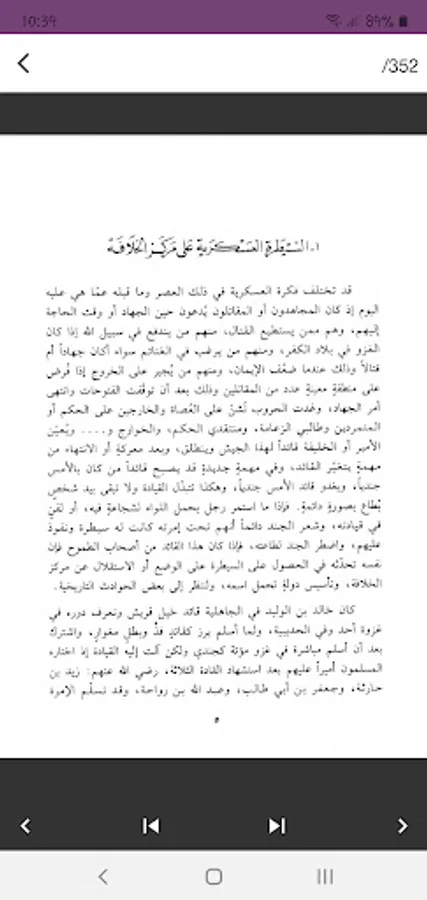 10:39
84%
/352
١- السَّيْطَرَةِ العَسْكَرِيَّةِ عَلى مَرْكَزِ الخِلَافَة
قد تختلف فكرة العسكرية في ذلك العصر وما قبله عمّا هي عليه
اليوم إذ كان المجاهدون أو المقاتلون يُدعون حين الجهاد أو وقت الحاجة
إليهم، وهم ممن يستطيع القتال، منهم من يندفع في سبيل الله إذا كان
الغزو في بلاد الكفر، ومنهم من يرغب في الغنائم سواء أكان جهاداً أم
قتالاً وذلك عندما ضعُف الإيمان، ومنهم من يُجبر على الخروج إذا فُرض
على منطقةٍ معينةٍ عدد من المقاتلين وذلك بعد أن توقّفت الفتوحات وانتهى
أمر الجهاد، وغدت الحروب تُشنّ على العُصاة والخارجين على الحكم أو
المتمردين وطالبي الزعامة، ومنتقدي الحكم، والخوارج و.... ويُعيّن
الأمير أو الخليفة قائداً لهذا الجيش وينطلق، وبعد معركةٍ أو الانتهاء من
مهمةٍ يتغيّر القائد، وفي مهمةٍ جديدةٍ قد يصبح قائداً من كان بالأمس
جندياً، ويغدو قائد الأمس جندياً، وهكذا تتبدّل القيادة ولا تبقى بيد شخصٍ
يُطاع بصورةٍ دائمةٍ. فإذا ما استمر رجل يحمل اللواء لشجاعةٍ فيه، أو لفنٍ
في قيادته، وشعر الجند دائماً أنهم تحت إمرته كانت له سيطرة ونفوذ
عليهم، واضطر الجند لطاعته، فإذا كان هذا القائد من أصحاب الطموح فإن
نفسه تحدّثه في الحصول على السيطرة على الوضع أو الاستقلال عن مركز
الخلافة، وتأسيس دولةٍ تحمل اسمه، ولننظر إلى بعض الحوادث التاريخية.
كان خالد بن الوليد في الجاهلية قائد خيل قريش ونعرف دوره في
غزوة أحد وفي الحديبية، ولما أسلم برز كقائدٍ فذٍّ وبطلٍ مغوارٍ، واشترك
بعد أن أسلم مباشرة في غزو مؤتة كجندي ولكن آلت إليه القيادة إذ اختاره
المسلمون أميراً عليهم بعد استشهاد القادة الثلاثة، رضي الله عنهم: زيد بن
حارثة، وجعفر بن أبي طالب، وعبد الله بن رواحة، وقد تسلّم الإمرة
٥